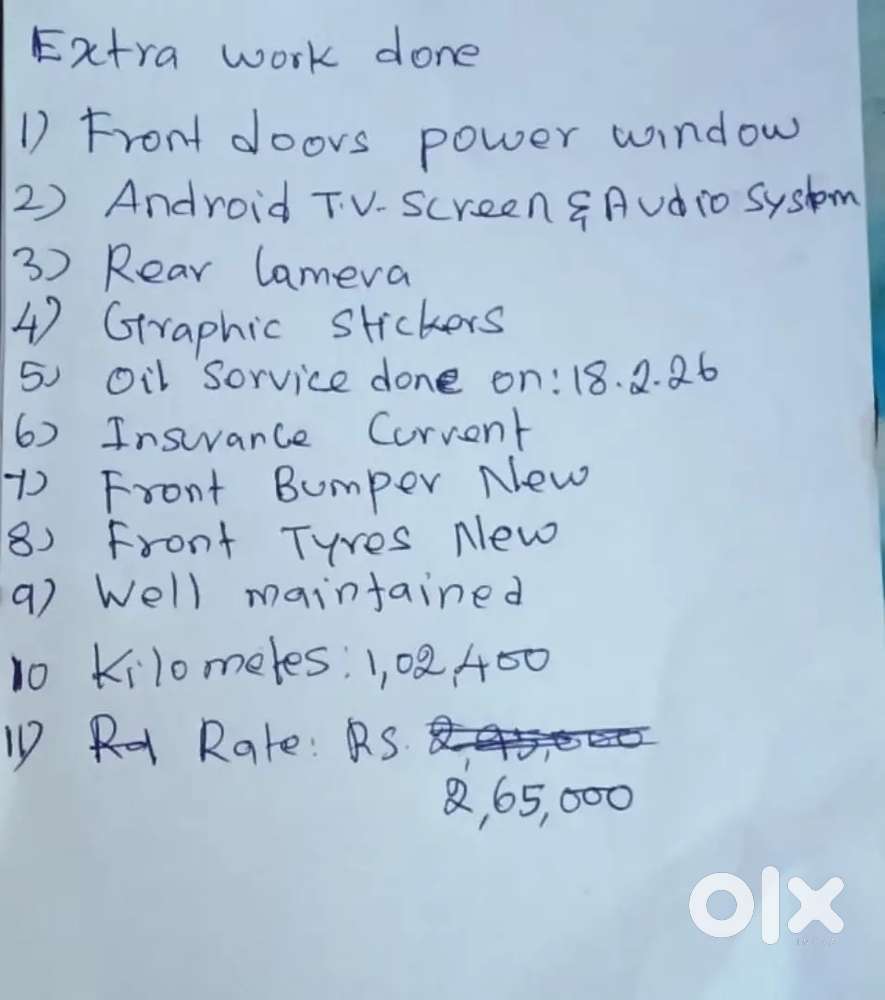 Extra work done
1) Front doors power window
2) Android T.V. Screen & Audio System
3) Rear Camera
4) Graphic Stickers
5) Oil Service done on: 18.2.26
6) Insurance Current
7) Front Bumper New
8) Front Tyres New
9) Well maintained
10 Kilometes: 1,02,400
11) Rate: RS. 2,95,000
2,65,000
OLX